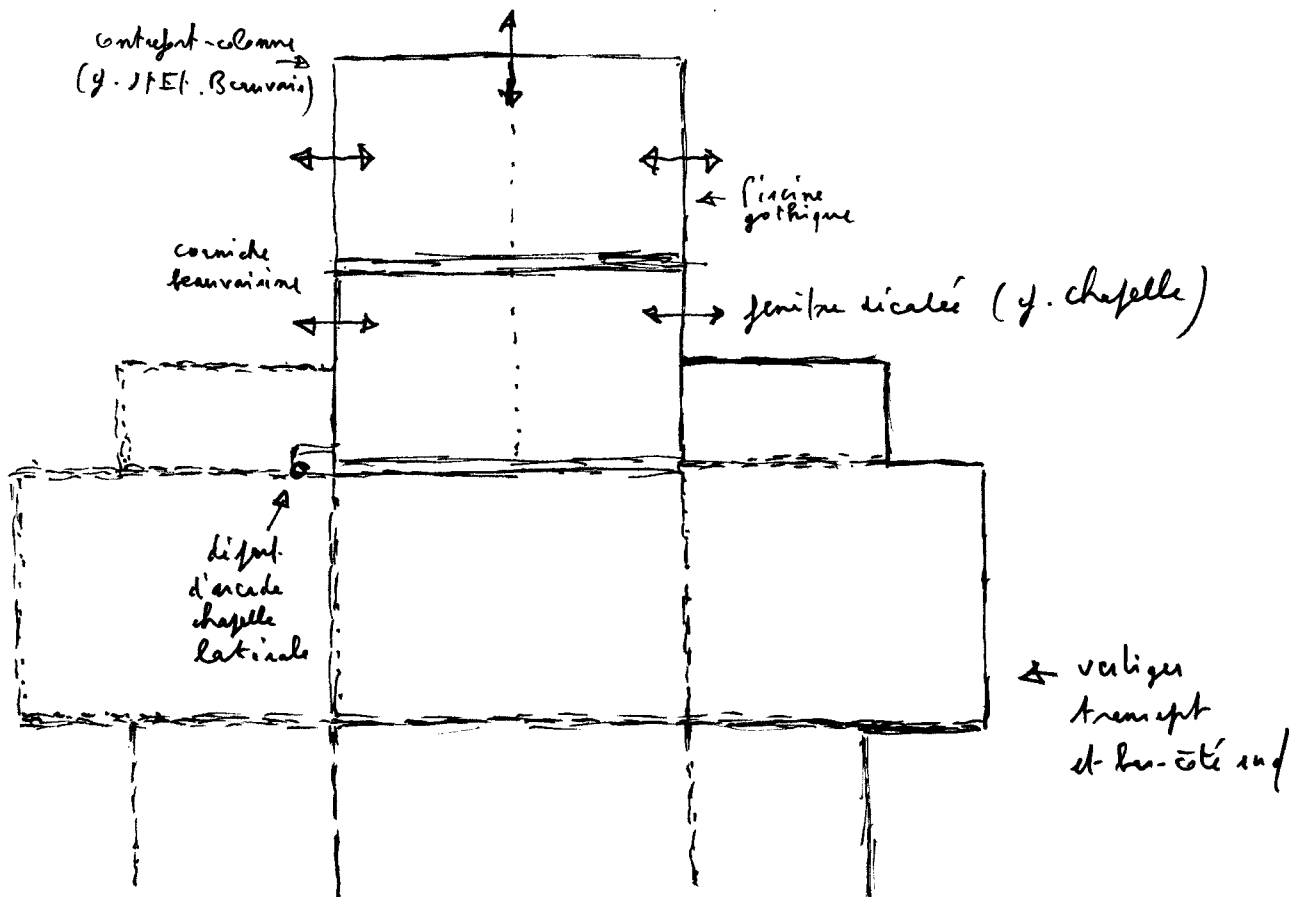 contrefort-colonne
(cf. St Et. Beauvais)
piscine
gothique
corniche
beauvaisine
fenêtre décalée (cf. chapelle)
départ
d'arcade
chapelle
latérale
vestiges
transept
et bas-côté sud